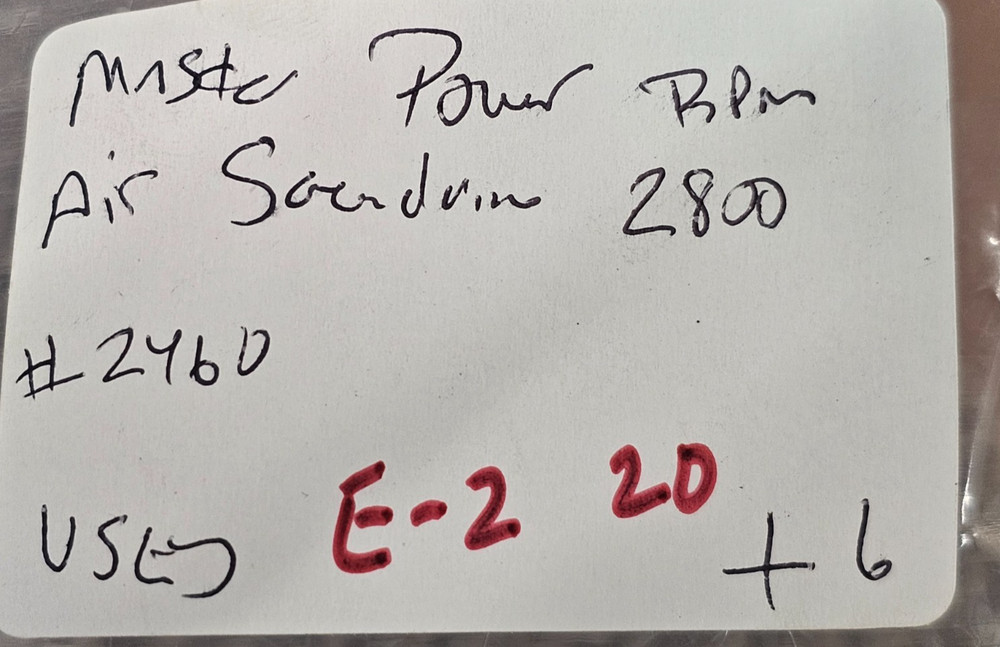 Master Power RPM
Air Screwdriver 2800
#2460
USED E-2 20 + 6